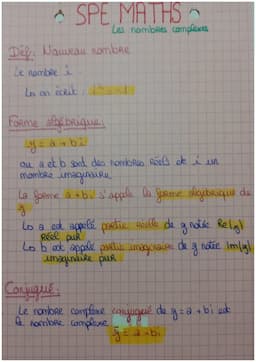 SPE MATHS
Les nombres complexes
Déf: Nouveau nombre
Le nombre i
Lo on écrit :
Forme algébrique:
z = a + bi
où a et b sont des nombres réels et i un
nombre imaginaire
La forme a+bi s'appelle la forme algébrique de
z
Lo a est appelé partie réelle de z notée Re(z)
Réel pur
Lo b est appelé partie imaginaire de z notée Im(z)
imaginaire pur
Conjugué:
Le nombre complexe conjugué de z = a + bi est
le nombre complexe z̄ = a - bi